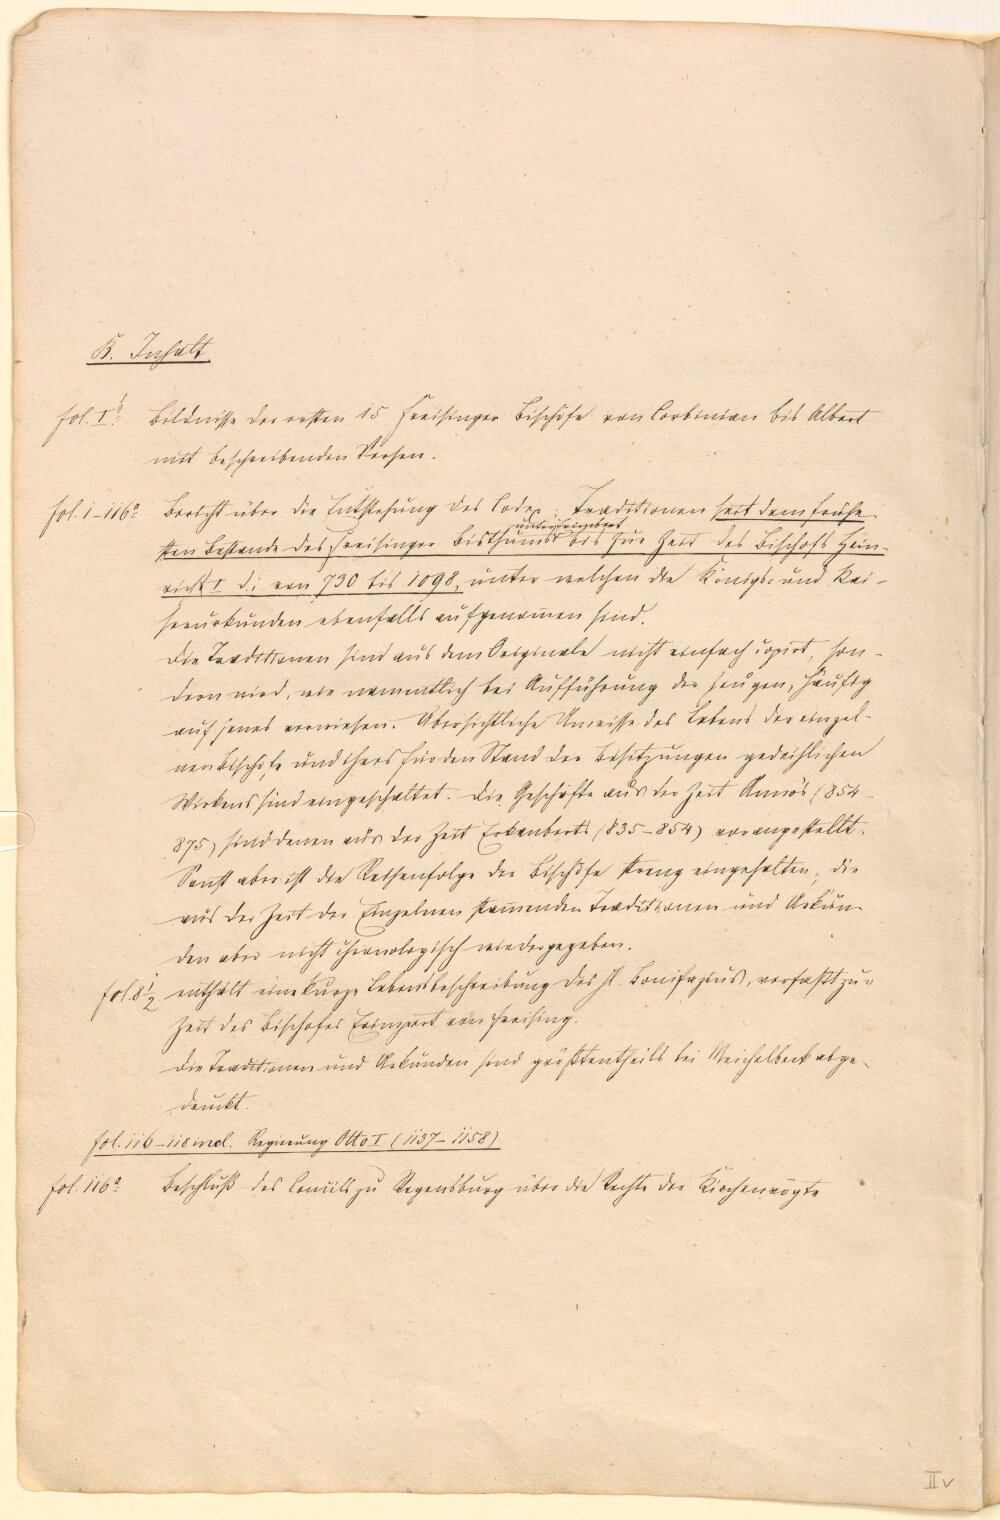 B. Inhalt
fol. I Bildnisse der ersten 15 Freisinger Bischöfe von Corbinian bis Albert
mit beschreibenden Versen.
fol. 1–116a Bericht über die Entstehung des Codex; Traditionen seit dem frühe
unter Erimbert
sten Bestande des Freisinger Bisthums bis zur Zeit des Bischofs Hein-
rich I d. i. von 730 bis 1098, unter welchen die Königs- und Kai-
serurkunden ebenfalls aufgenomen sind.
Die Traditionen sind aus dem Originale nicht einfach copirt, son-
dern wird, wie namentlich bei Aufführung der Zeugen, häufig
auf jenes verwiesen. Übersichtliche Umrisse des Lebens der einzel-
nen Bischöfe und ihres für den Stand der Besitzungen gedeihlichen
Wirkens sind eingeschaltet. Die Geschäfte aus der Zeit Anno's (854–
875) sind denen aus der Zeit Erkanberts (835–854) vorangestellt.
Sonst aber ist die Reihenfolge der Bischöfe streng eingehalten; die
aus der Zeit der Einzelnen stamenden Traditionen und Urkun-
den aber nicht chronologisch wiedergegeben.
fol. 81/2 enthält eine kurze Lebensbeschreibung des hl. Bonifazius, verfaßt zur
Zeit des Bischofes Erimpert von Freising.
Die Traditionen und Urkunden sind größtentheils bei Meichelbeck abge-
druckt.
fol. 116–118 incl. Regierung Otto I (1137–1158)
fol. 116a Beschluß des Concils zu Regensburg über die Rechte der Kirchenvögte
II v